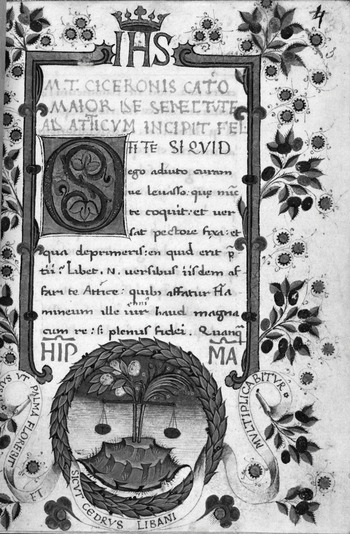 IHS
M. T. CICERONIS CATO
MAIOR DE SENECTVTE
AD ATTICVM INCIPIT FEL
TITE SI QVID
S
ego adiuto curam
ue levasso. que nunc
te coquit: et ver
sat pectore fixa: et
qua deprimeris: en quid erit
Libet. N. versibus iisdem af
fari te Attice: quib; affatur
mineum ille vir haud magna
cum re: si plenus fidei. Quanq
HIP MA
VT PALMA FLOREBIT
ET SICVT CEDRVS LIBANI
MVLTIPLICABITVR